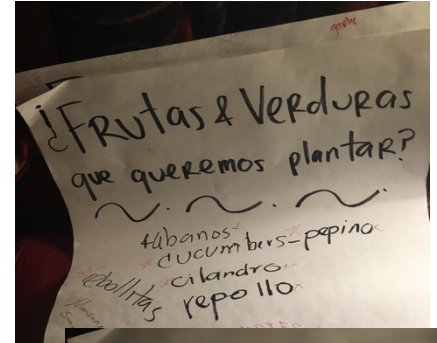 garlic
¿FRutas & VeRduRas
que queRemos plantaR?
Rábanos
cucumbers-pepino
cilandro
repollo
cebollitas